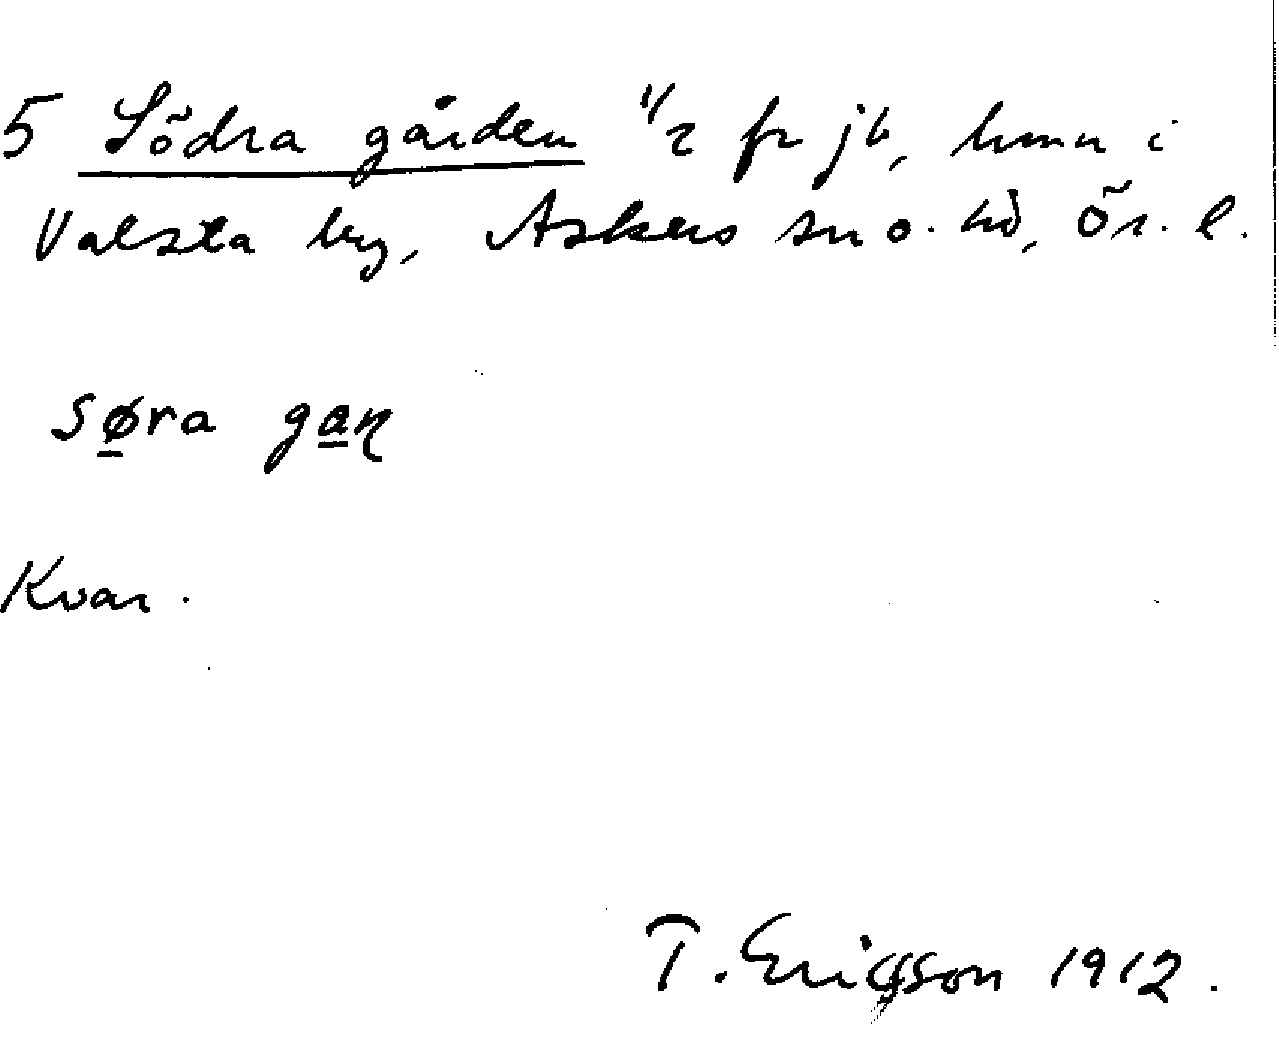 5 Södra gården 1/2 fr jb, hmn i
Valsta by, Askers sn o. hd, Ör. l.
søra gaṉ
Kvar.
T. Ericsson 1912.